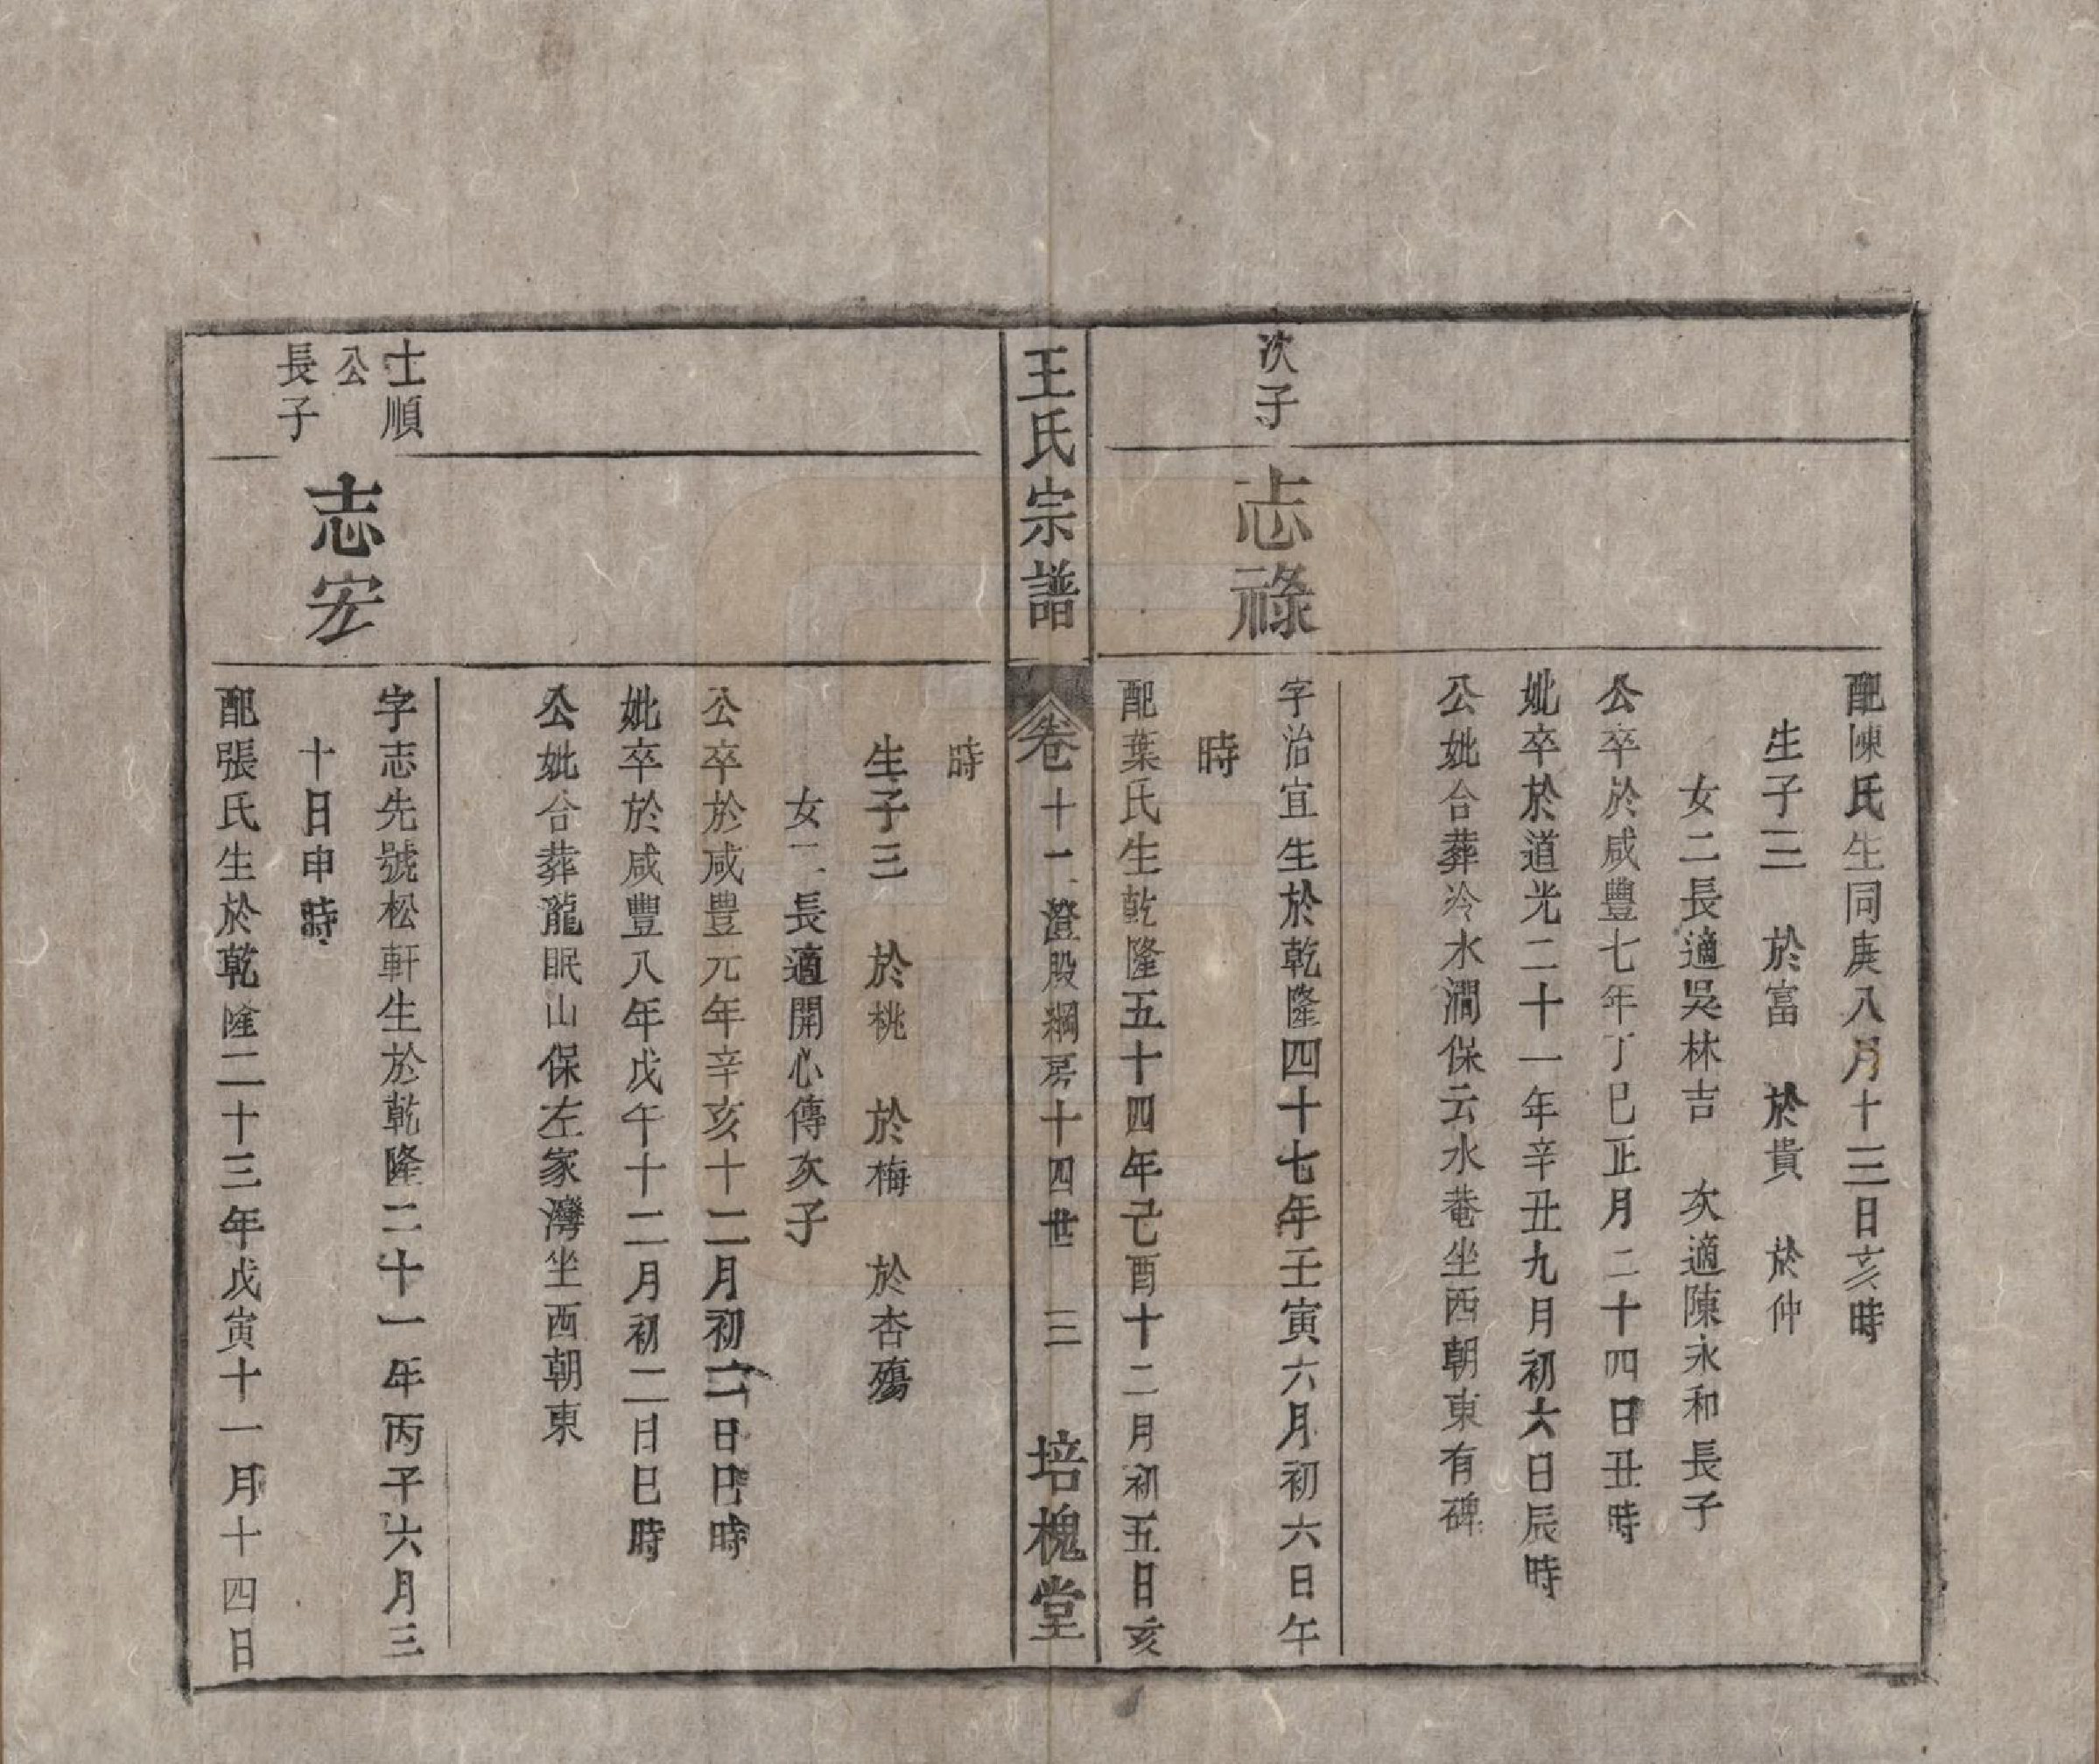 配陳氏生同庚八月十三日亥時
生子三　於富　於貴　於仲
女二長適吳林吉　次適陳永和長子
公卒於咸豐七年丁巳正月二十四日丑時
妣卒於道光二十一年辛丑九月初六日辰時
公妣合葬冷水澗保云水菴坐西朝東有碑
次子
志祿
字治宜生於乾隆四十七年壬寅六月初六日午
時
配葉氏生乾隆五十四年己酉十二月初五日亥
王氏宗譜
卷十一澄股綱房十四世　三
培槐堂
時
生子三　於桃　於梅　於杏殤
女二長適開心傳次子
公卒於咸豊元年辛亥十二月初二日巳時
妣卒於咸豐八年戊午十二月初二日巳時
公妣合葬龍眠山保左家灣坐西朝東
士順
公
長子
志宏
字志先號松軒生於乾隆二十一年丙子六月三
十日申時
配張氏生於乾隆二十三年戊寅十一月十四日